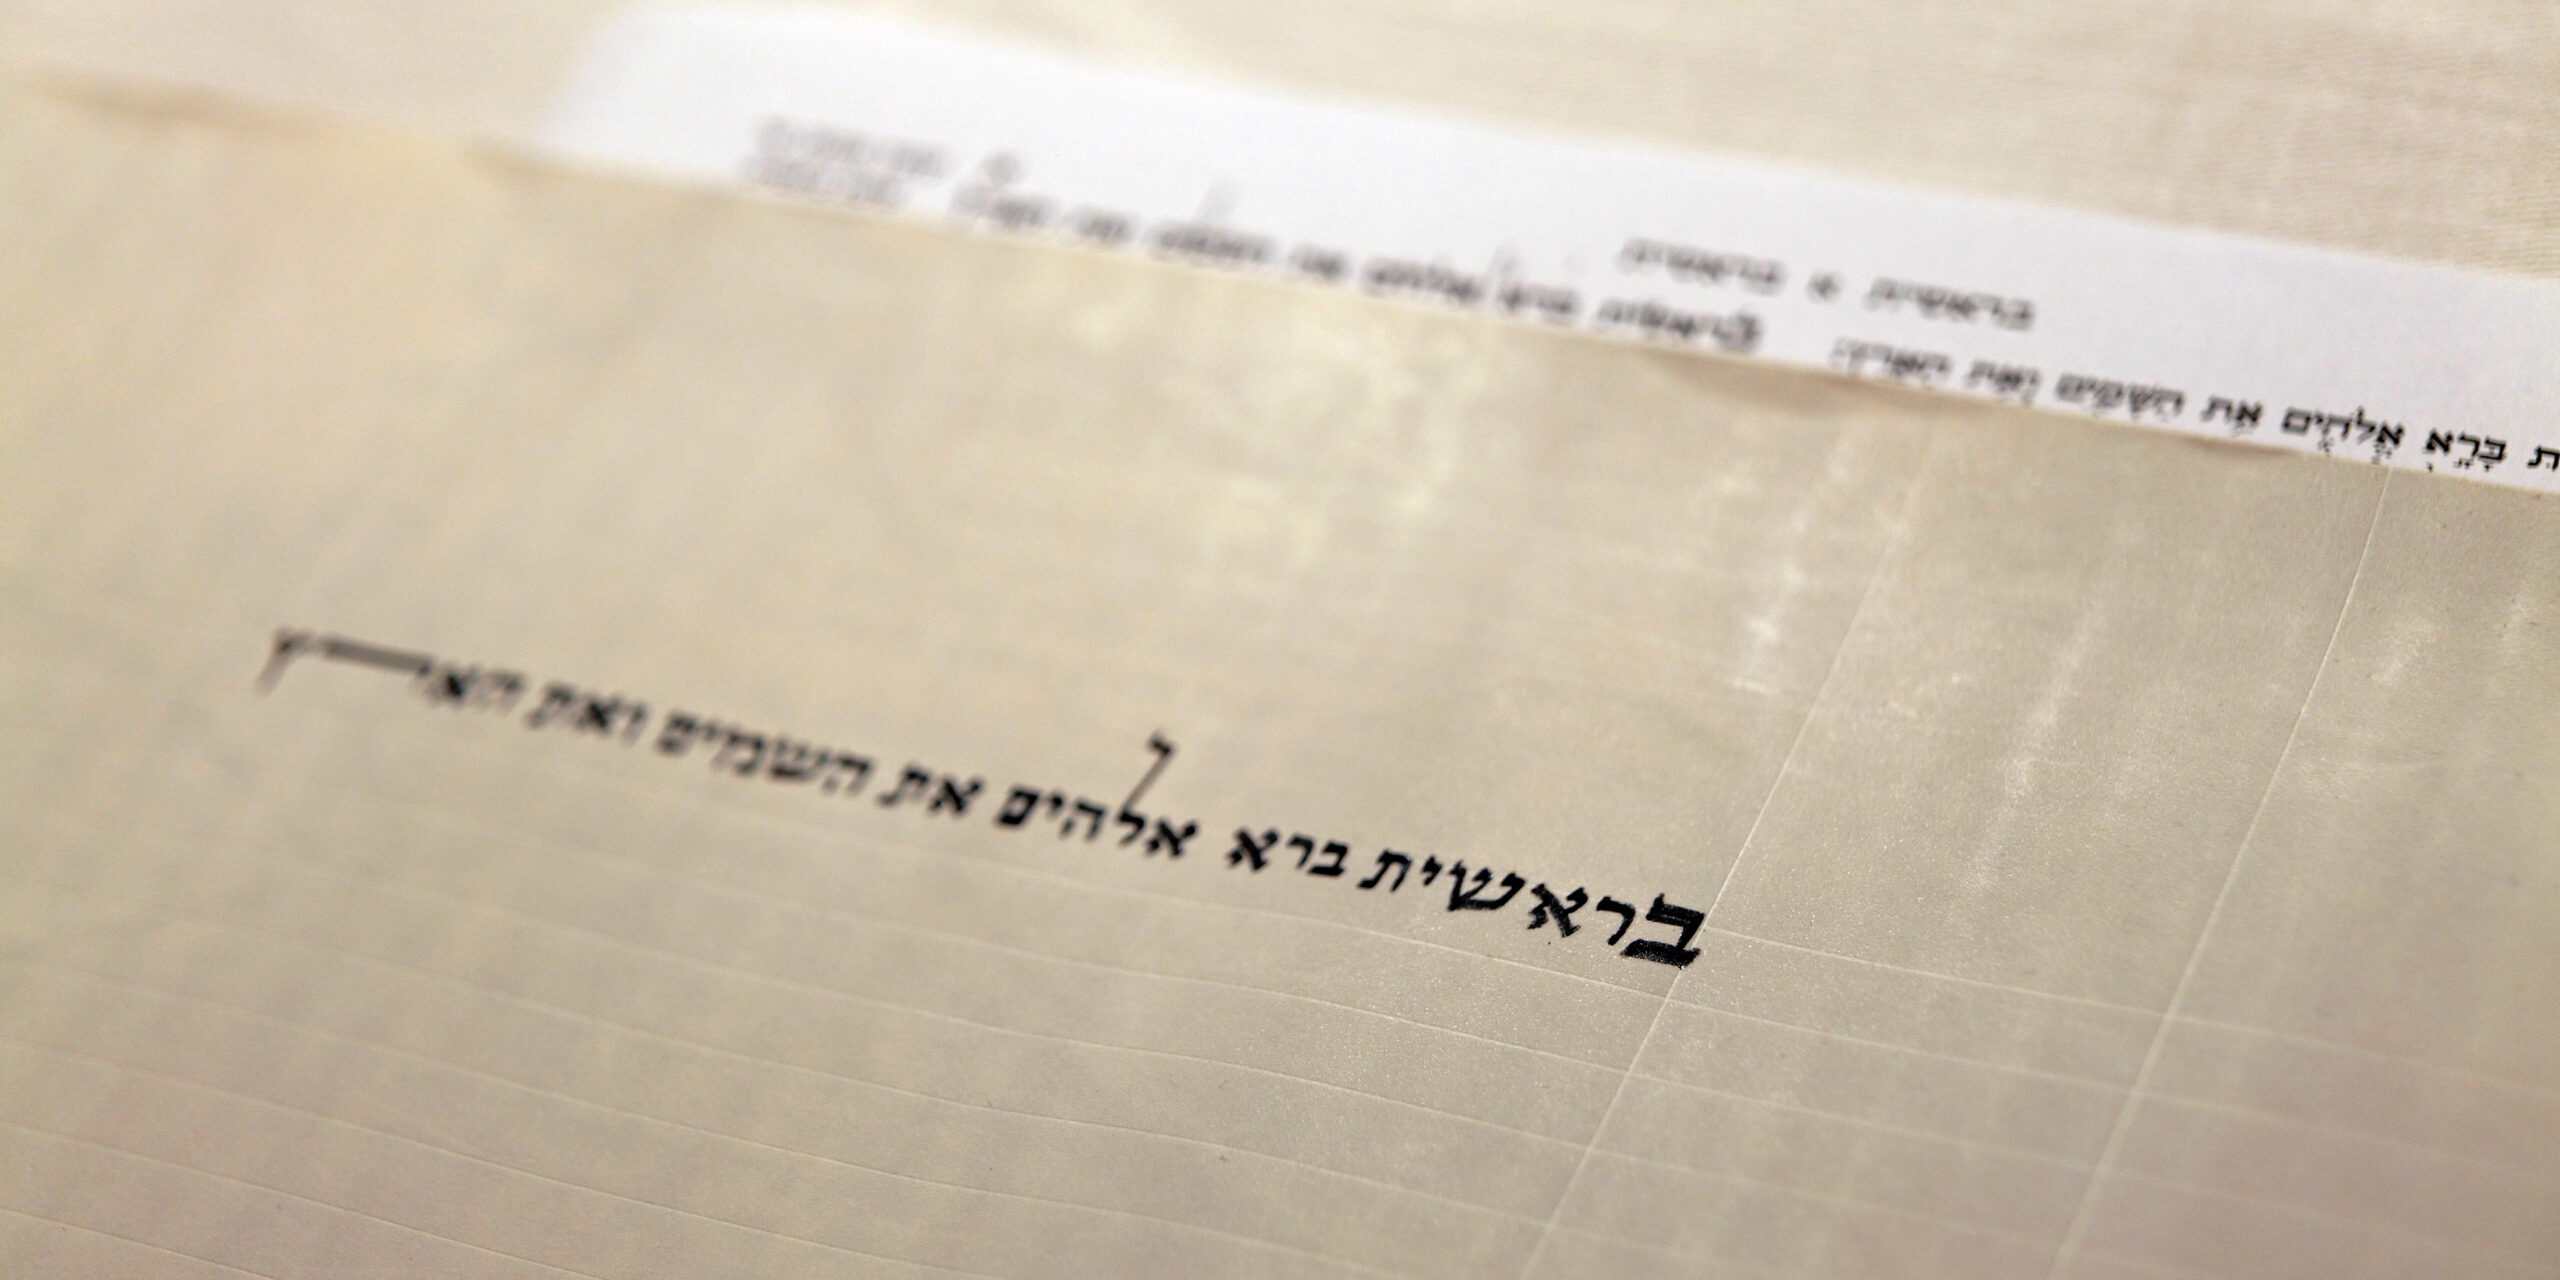 בראשית א בראשית
ת בָּרָא אֱלֹהִים אֵת הַשָּׁמַיִם וְאֵת הָאָרֶץ
בראשית ברא אלהים את השמים ואת הארץ
בראשית ברא אלהים את השמים ואת הארץ